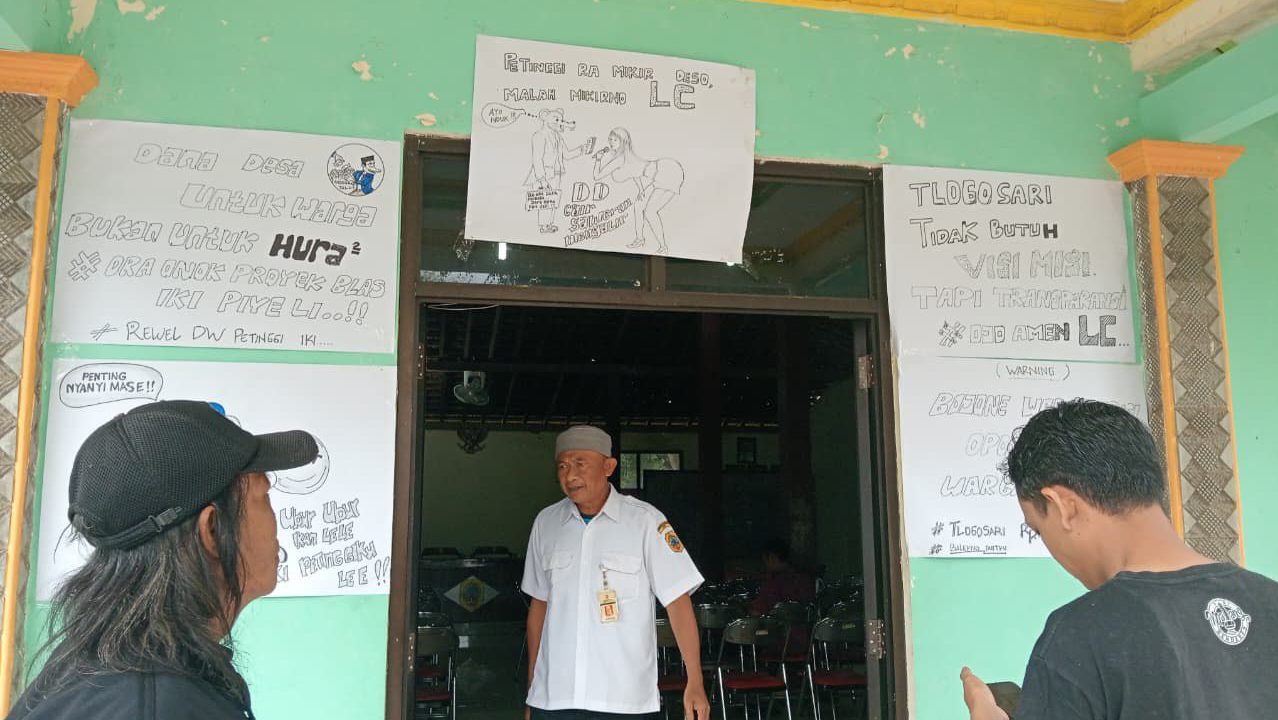 PETINGGI RA MIKIR DESO,
MALAH MIKIRNO LC
AYO
NDUK !!!
DD
CAIR
SAWERAN
MENGALIR
DANA DESA
UNTUK WARGA
BUKAN UNTUK HURA²
# ORA ONOK PROYEK BLAS
IKI PIYE LI..!!
# REWEL DW PETINGGI IKI....
PENTING
NYANYI MASE!!
UBUR UBUR
IKAN LELE
PETINGGIKU
LEE!!
TLOGOSARI
TIDAK BUTUH
VISI MISI.
TAPI TRANSPARANSI
# OJO AMEN LC...
(WARNING)
BOJONE
OPO
WARGA
# TLOGOSARI